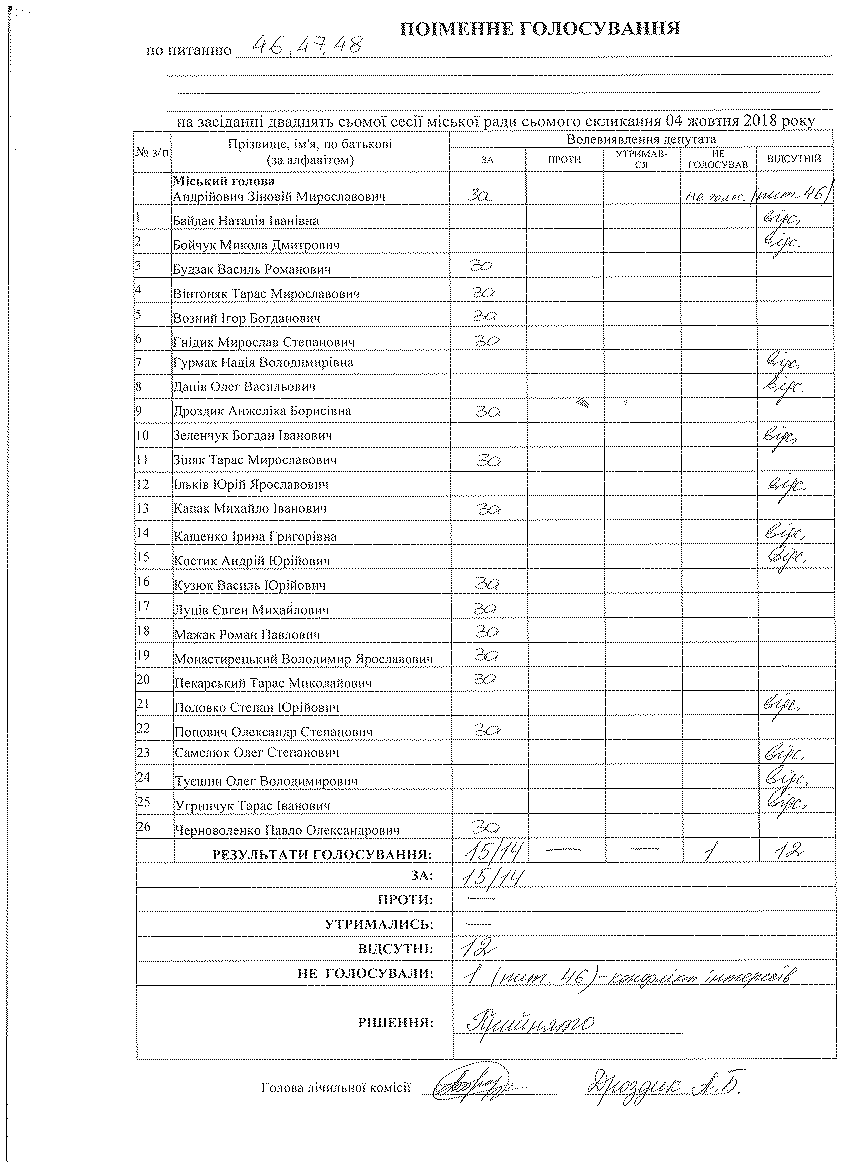 ПОІМЕННЕ ГОЛОСУВАННЯ
по питанню 46, 47, 48
на засіданні двадцять сьомої сесії міської ради сьомого скликання 04 жовтня 2018 року
№ з/п Прізвище, ім'я, по батькові (за алфавітом) Волевиявлення депутата
ЗА ПРОТИ УТРИМАВ-СЯ НЕ ГОЛОСУВАВ ВІДСУТНІЙ
Міський голова
Андрійович Зіновій Мирославович за не голос. (пит. 46)
1 Байдак Наталія Іванівна відс.
2 Бойчук Микола Дмитрович відс.
3 Будзак Василь Романович за
4 Вінтоняк Тарас Мирославович за
5 Возний Ігор Богданович за
6 Гнідик Мирослав Степанович за
7 Гурмак Надія Володимирівна відс.
8 Данів Олег Васильович відс.
9 Дроздик Анжеліка Борисівна за
10 Зеленчук Богдан Іванович відс.
11 Зіняк Тарас Мирославович за
12 Ільків Юрій Ярославович відс.
13 Капак Михайло Іванович за
14 Кащенко Ірина Григорівна відс.
15 Костик Андрій Юрійович відс.
16 Кузюк Василь Юрійович за
17 Луців Євген Михайлович за
18 Мажак Роман Павлович за
19 Монастирецький Володимир Ярославович за
20 Пекарський Тарас Миколайович за
21 Половко Степан Юрійович відс.
22 Попович Олександр Степанович за
23 Самелюк Олег Степанович відс.
24 Тусшин Олег Володимирович відс.
25 Угринчук Тарас Іванович відс.
26 Черноволенко Павло Олександрович за
РЕЗУЛЬТАТИ ГОЛОСУВАННЯ: 15/14 — — 1 12
ЗА: 15/14
ПРОТИ: —
УТРИМАЛИСЬ: —
ВІДСУТНІ: 12
НЕ ГОЛОСУВАЛИ: 1 (пит. 46) - конфлікт інтересів
РІШЕННЯ: Прийнято
Голова лічильної комісії Дроздик А.Б.